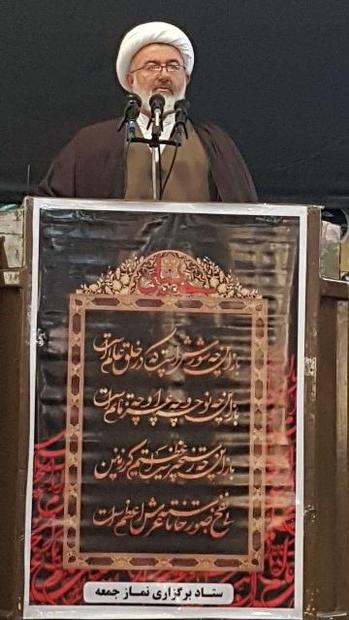 باز این چه شورش است که در خلق عالم است
باز این چه نوحه و چه عزا و چه ماتم است
باز این چه رستخیز عظیم است کز زمین
بی نفخ صور خاسته تا عرش اعظم است
ستاد برگزاری نماز جمعه